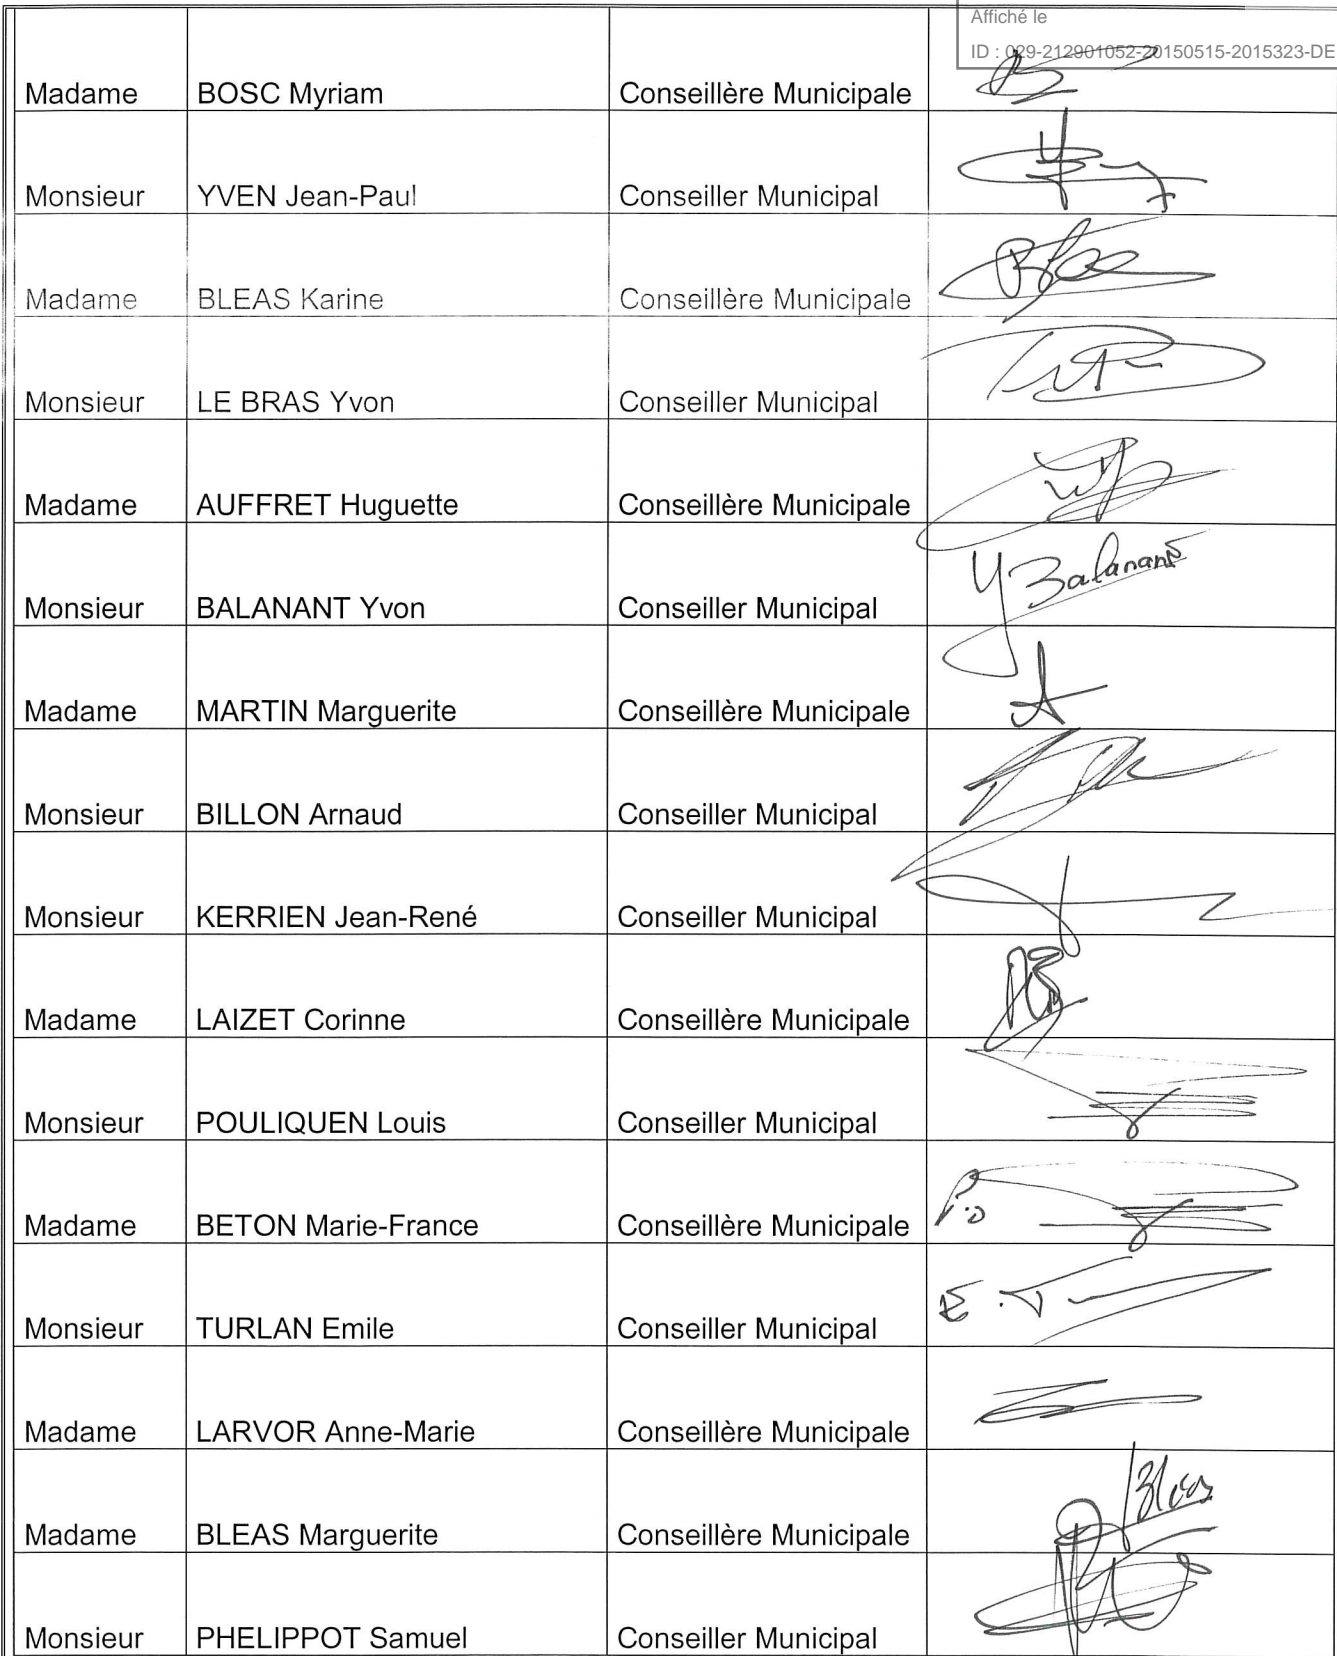 Affiché le
ID : 029-212901052-20150515-2015323-DE
Madame BOSC Myriam Conseillère Municipale
Monsieur YVEN Jean-Paul Conseiller Municipal
Madame BLEAS Karine Conseillère Municipale
Monsieur LE BRAS Yvon Conseiller Municipal
Madame AUFFRET Huguette Conseillère Municipale
Monsieur BALANANT Yvon Conseiller Municipal Y Balanant
Madame MARTIN Marguerite Conseillère Municipale
Monsieur BILLON Arnaud Conseiller Municipal
Monsieur KERRIEN Jean-René Conseiller Municipal
Madame LAIZET Corinne Conseillère Municipale
Monsieur POULIQUEN Louis Conseiller Municipal
Madame BETON Marie-France Conseillère Municipale
Monsieur TURLAN Emile Conseiller Municipal
Madame LARVOR Anne-Marie Conseillère Municipale
Madame BLEAS Marguerite Conseillère Municipale
Monsieur PHELIPPOT Samuel Conseiller Municipal